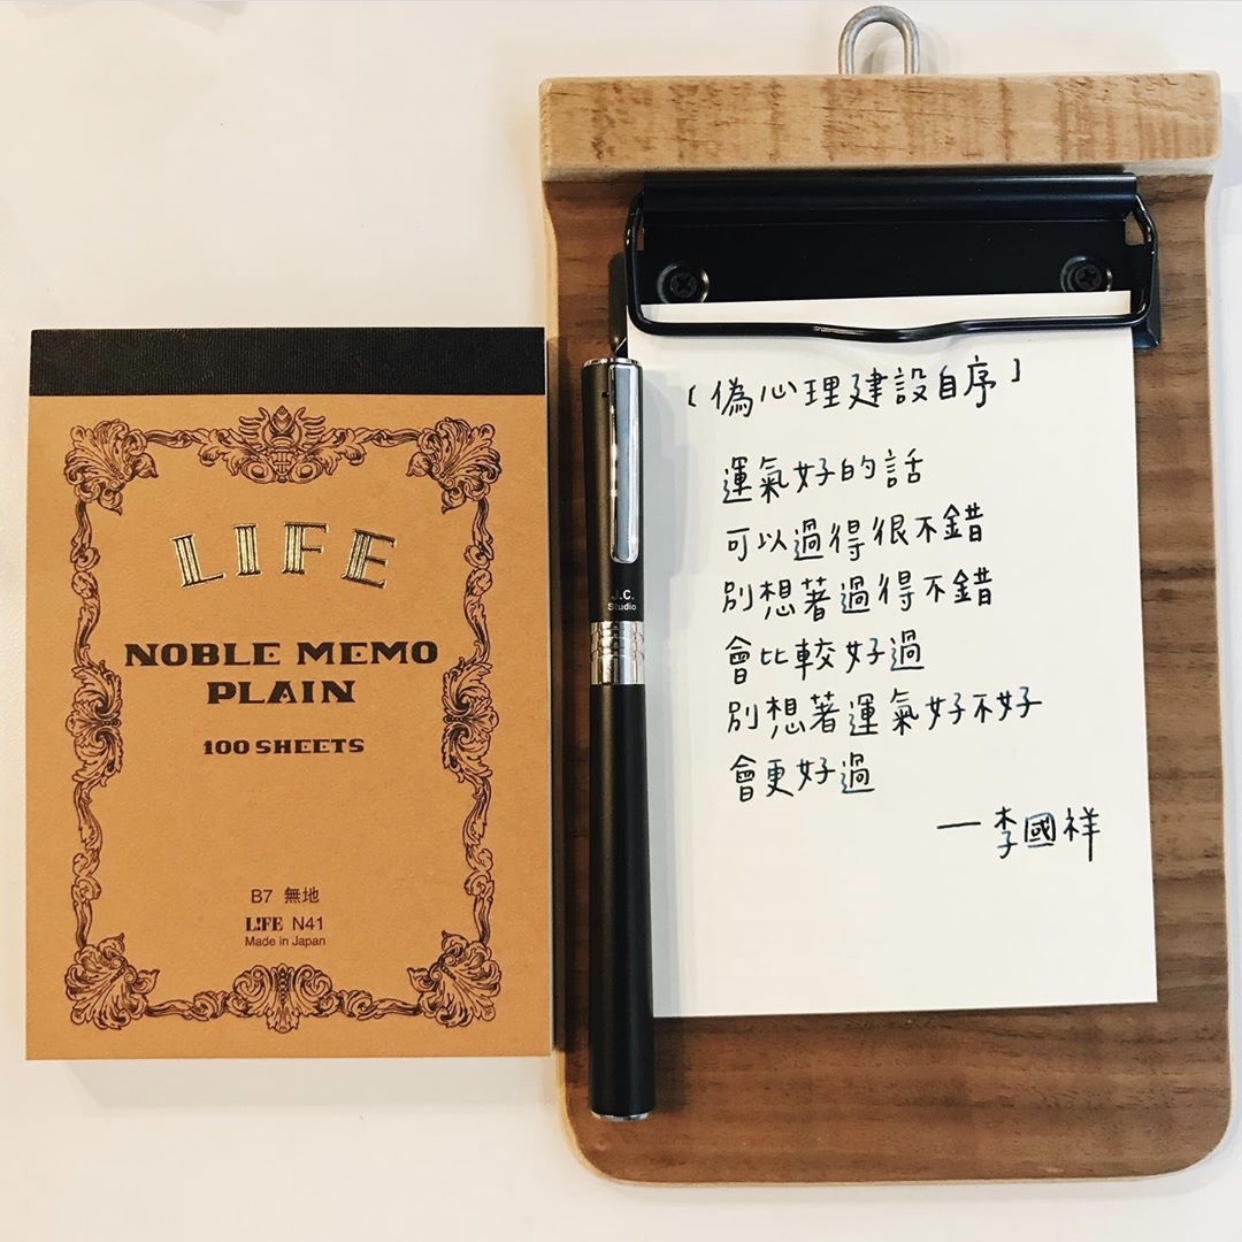 LIFE
NOBLE MEMO
PLAIN
100 SHEETS
B7 無地
LIFE N41
Made in Japan
J.C.
Studio
〔偽心理建設自序〕
運氣好的話
可以過得很不錯
別想著過得不錯
會比較好過
別想著運氣好不好
會更好過
— 李國祥